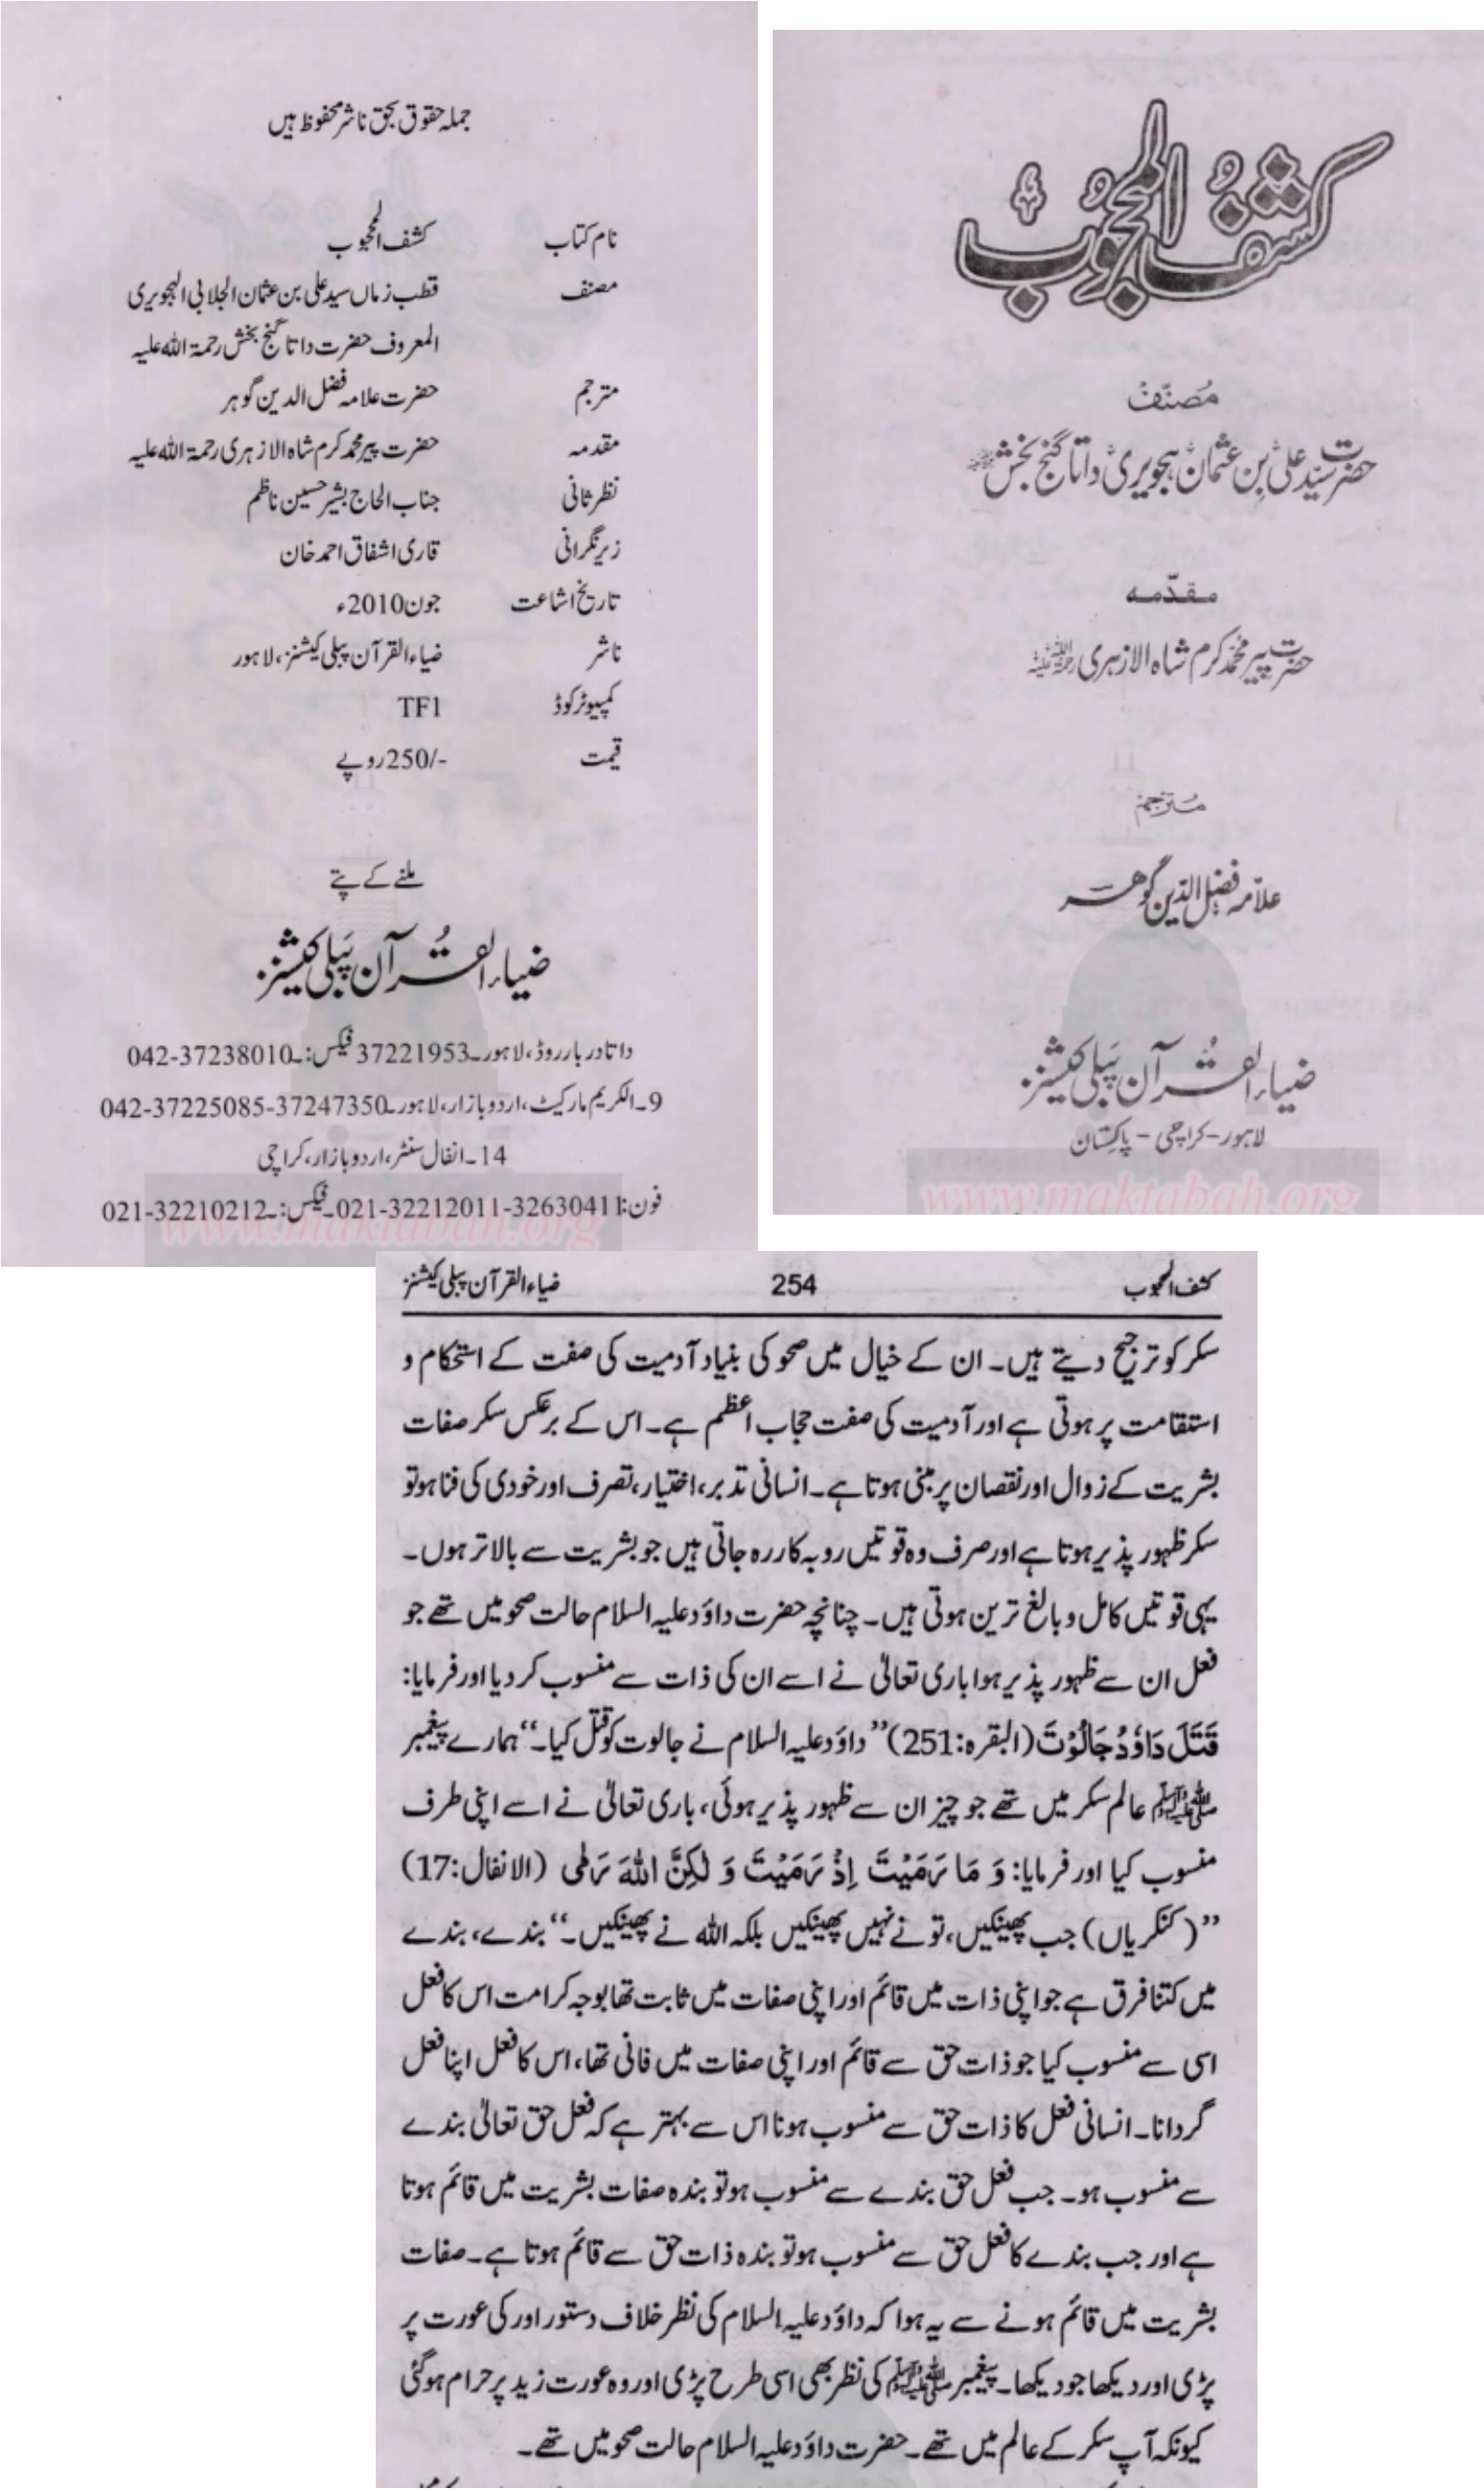 جملہ حقوق بحق ناشر محفوظ ہیں
نام کتاب کشف المحجوب
مصنف قطب زماں سید علی بن عثمان الجلابی الہجویری
المعروف حضرت داتا گنج بخش رحمۃ اللہ علیہ
مترجم حضرت علامہ فضل الدین گوہر
مقدمہ حضرت پیر محمد کرم شاہ الازہری رحمۃ اللہ علیہ
نظر ثانی جناب الحاج بشیر حسین ناظم
زیر نگرانی قاری اشفاق احمد خان
تاریخ اشاعت جون 2010ء
ناشر ضیاء القرآن پبلی کیشنز، لاہور
کمپیوٹر کوڈ TF1
قیمت 250/- روپے
ملنے کے پتے
ضیاء القرآن پبلی کیشنز
داتا دربار روڈ، لاہور۔37221953 فیکس:۔042-37238010
9۔الکریم مارکیٹ، اردو بازار، لاہور۔042-37225085-37247350
14۔انفال سنٹر، اردو بازار، کراچی
فون:021-32212011-32630411۔فیکس:۔021-32210212
www.maktabah.org
کشف المحجوب
مصنف
حضرت سید علی بن عثمان ہجویری داتا گنج بخش
مقدمہ
حضرت پیر محمد کرم شاہ الازہری رحمۃ اللہ علیہ
مترجم
علامہ فضل الدین گوہر
ضیاء القرآن پبلی کیشنز
لاہور - کراچی - پاکستان
www.maktabah.org
کشف المحجوب 254 ضیاء القرآن پبلی کیشنز
سکر کو ترجیح دیتے ہیں۔ ان کے خیال میں صحو کی بنیاد آدمیت کی صفت کے استحکام و
استقامت پر ہوتی ہے اور آدمیت کی صفت حجاب اعظم ہے۔ اس کے برعکس سکر صفات
بشریت کے زوال اور نقصان پر مبنی ہوتا ہے۔ انسانی تدبر، اختیار، تصرف اور خودی کی فنا ہو تو
سکر ظہور پذیر ہوتا ہے اور صرف وہ قوتیں روبہ کار رہ جاتی ہیں جو بشریت سے بالاتر ہوں۔
یہی قوتیں کامل و بالغ ترین ہوتی ہیں۔ چنانچہ حضرت داؤد علیہ السلام حالت صحو میں تھے جو
فعل ان سے ظہور پذیر ہوا باری تعالیٰ نے اسے ان کی ذات سے منسوب کر دیا اور فرمایا:
قَتَلَ دَاوٗدُ جَالُوْتَ (البقرہ:251) ”داؤد علیہ السلام نے جالوت کو قتل کیا۔“ ہمارے پیغمبر
ﷺ عالم سکر میں تھے جو چیز ان سے ظہور پذیر ہوئی، باری تعالیٰ نے اسے اپنی طرف
منسوب کیا اور فرمایا: وَ مَا رَمَيْتَ اِذْ رَمَيْتَ وَ لٰكِنَّ اللّٰهَ رَمٰى (الانفال:17)
”(کنکریاں) جب پھینکیں، تو نے نہیں پھینکیں بلکہ اللہ نے پھینکیں۔“ بندے، بندے
میں کتنا فرق ہے جو اپنی ذات میں قائم اور اپنی صفات میں ثابت تھا بوجہ کرامت اس کا فعل
اسی سے منسوب کیا جو ذات حق سے قائم اور اپنی صفات میں فانی تھا، اس کا فعل اپنا فعل
گردانا۔ انسانی فعل کا ذات حق سے منسوب ہونا اس سے بہتر ہے کہ فعل حق تعالیٰ بندے
سے منسوب ہو۔ جب فعل حق بندے سے منسوب ہو تو بندہ صفات بشریت میں قائم ہوتا
ہے اور جب بندے کا فعل حق سے منسوب ہو تو بندہ ذات حق سے قائم ہوتا ہے۔ صفات
بشریت میں قائم ہونے سے یہ ہوا کہ داؤد علیہ السلام کی نظر خلاف دستور اور کی عورت پر
پڑی اور دیکھا جو دیکھا۔ پیغمبر ﷺ کی نظر بھی اسی طرح پڑی اور وہ عورت زید پر حرام ہو گئی
کیونکہ آپ سکر کے عالم میں تھے۔ حضرت داؤد علیہ السلام حالت صحو میں تھے۔